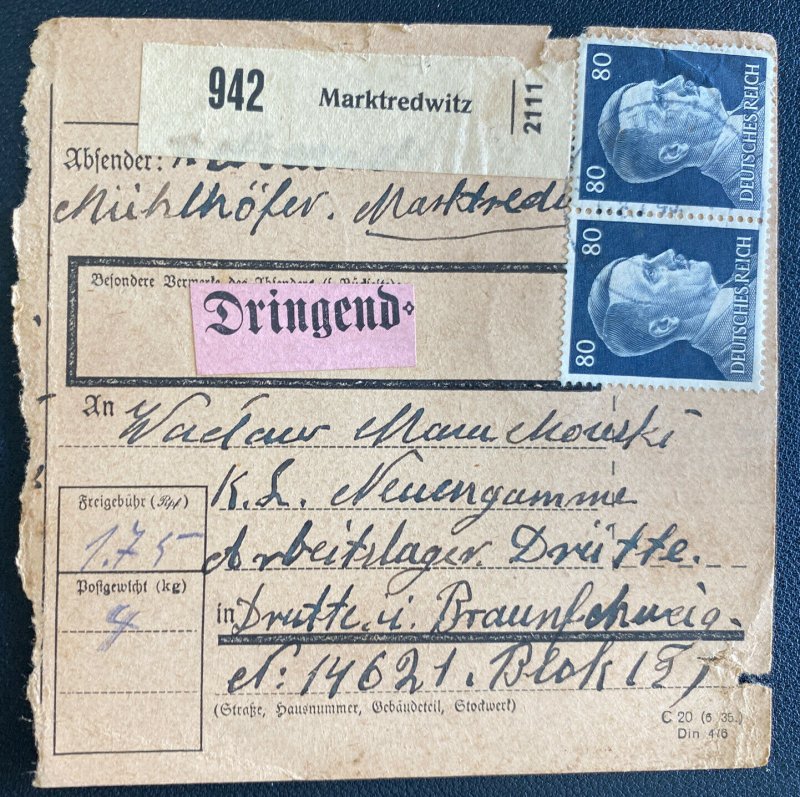 942 Marktredwitz 2111
80 DEUTSCHES REICH
80
Absender:
Mühlhöfer. Marktredw
80 DEUTSCHES REICH
80
Besondere Vermerke des Absenders
Dringend
An Wacław
K. L. Neuengamme
Freigebühr (Rpf)
1.75
Arbeitslager. Drütte.
Postgewicht (kg)
in Drutte. i. Braunschweig.
N: 14621. Blok
(Straße, Hausnummer, Gebäudeteil, Stockwerk)
C 20 (6. 35.)
Din 476